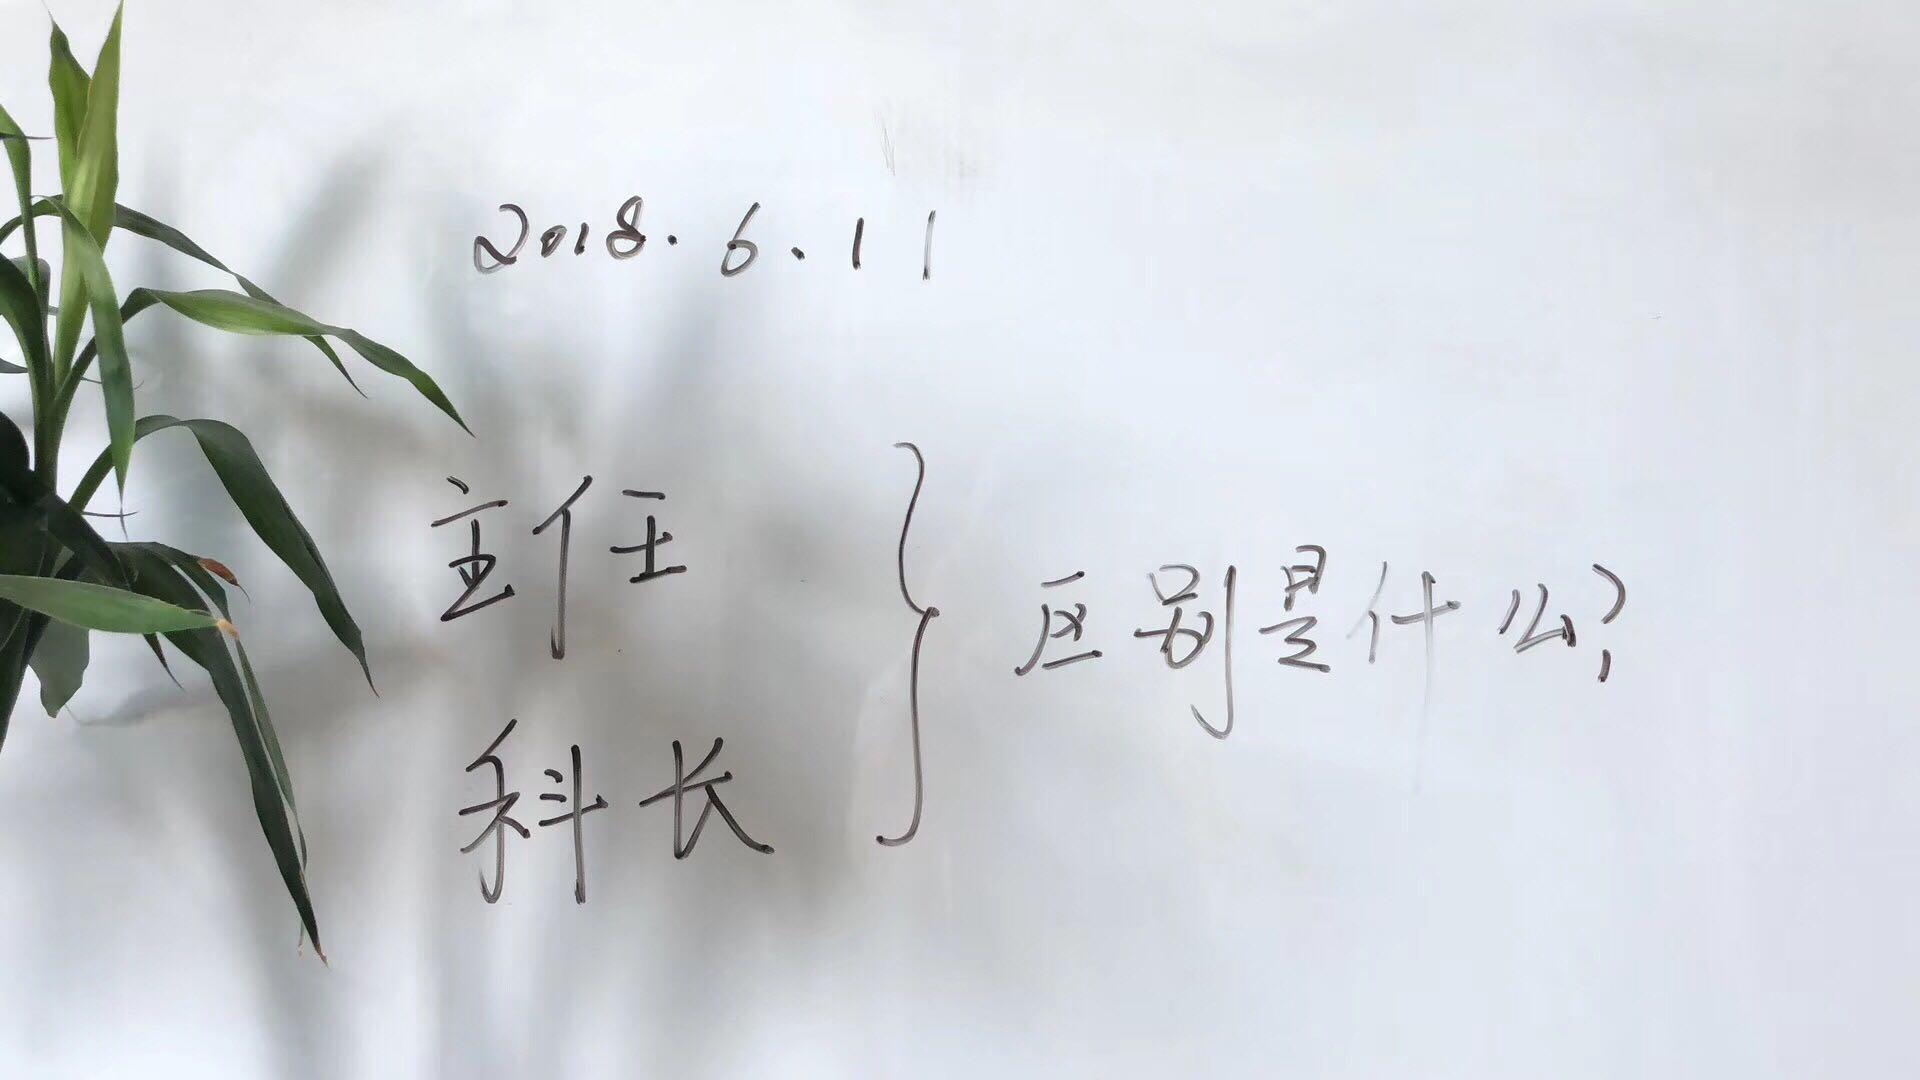 2018.6.11
主任
科长
区别是什么?